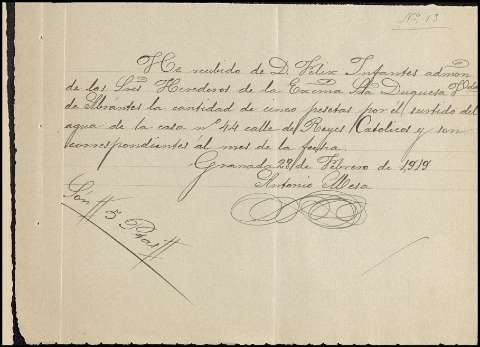 Nº 13
He recibido de D. Felix Infantes admon
de los Sres Herederos de la Excma Sra Duquesa Vda
de Abrantes la cantidad de cinco pesetas por el surtido del
agua de la casa nº 44 calle de Reyes Catolicos y son
correspondientes al mes de la fecha
Granada 28 de Febrero de 1919
Antonio Mesa
Son # 5 Ptas #